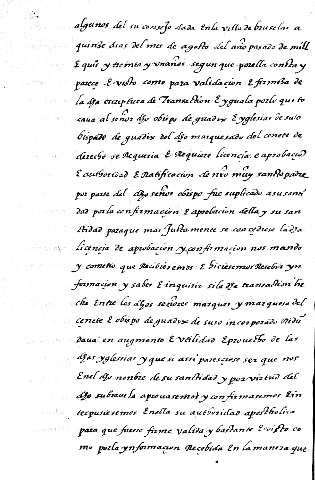 algunos del su consejo dada En la villa de bruselas a
quinze dias del mes de agosto del año pasado de mill
E quis y treinta y un años segun que por ella consta y
parece E visto como para validacion E firmeza de
la dha escriptura de Transaction E yguala por lo que to
caua al señor obispo de guadix E yglesias de su o
bispado de guadix del dho marquesado del cenete de
derecho se Requeria E Requiere licencia E aprobacion
E authoridad E Ratificacion de nro muy santo padre
por parte del dho señor obispo fue suplicado a su santi
dad por la confirmacion E aprobacion della y su san
tidad para que mas Justamente se concediese la dha
licencia de aprobacion y confirmacion nos mando
y cometio que Recibiesemos E hiciesemos Recebir yn
formacion y saber E inquirir si la dha transaction he
cha Entre los dhos señores marques y marquesa del
cenete E obispo de guadix de suso incorporado Redun
daua en augmento E vtilidad E prouecho de las
dhas yglesias y que si assi paresciese ser que nos
En el dho nonbre de su santidad y por virtud del
dho su breue la aprouasemos y confirmasemos E in
terpusiesemos En ella su authoridad apostholica
para que fuese firme valida y bastante E visto co
mo por la ynformacion Recebida En la manera que